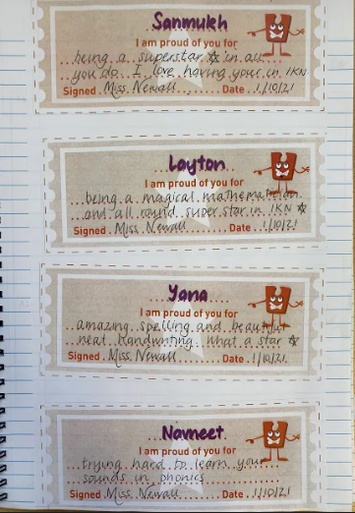 Sanmukh
I am proud of you for
being a superstar ☆ in all
you do. I love having your in 1KN
Signed Miss. Newall Date 1/10/21
Layton
I am proud of you for
being a magical mathematician
and all round superstar in 1KN ☆
Signed Miss. Newall Date 1/10/21
Yana
I am proud of you for
amazing spelling and beautiful
neat handwriting. What a star ☆
Signed Miss. Newall Date 1/10/21
Navneet
I am proud of you for
trying hard to learn your
sounds in phonics
Signed Miss. Newall Date 1/10/21